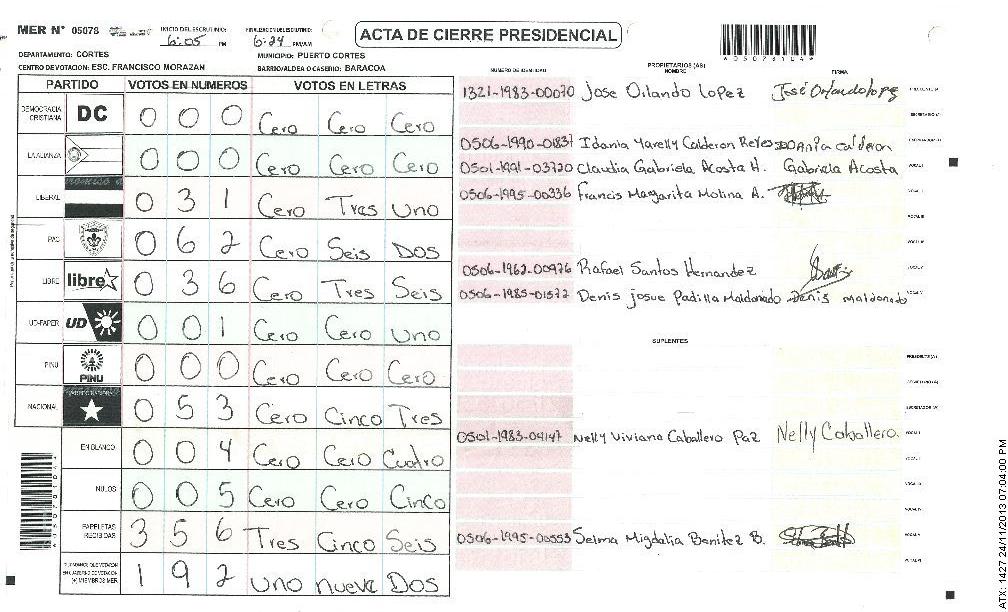 MER N° 05078 INICIO DEL ESCRUTINIO: 6:05 PM FINALIZACION DEL ESCRUTINIO: 6:24 PM/AM
ACTA DE CIERRE PRESIDENCIAL
*05078104*
DEPARTAMENTO: CORTES MUNICIPIO: PUERTO CORTES
CENTRO DE VOTACION: ESC. FRANCISCO MORAZAN BARRIO/ALDEA O CASERIO: BARACOA
PARTIDO VOTOS EN NUMEROS VOTOS EN LETRAS
DEMOCRACIA CRISTIANA DC 0 0 0 Cero Cero Cero
LA ALIANZA 0 0 0 Cero Cero Cero
LIBERAL 0 3 1 Cero Tres Uno
PAC 0 6 2 Cero Seis Dos
LIBRE libre 0 3 6 Cero Tres Seis
UD-FAPER UD 0 0 1 Cero Cero Uno
PINU PINU 0 0 0 Cero Cero Cero
NACIONAL 0 5 3 Cero Cinco Tres
EN BLANCO 0 0 4 Cero Cero Cuatro
NULOS 0 0 5 Cero Cero Cinco
PAPELETAS RECIBIDAS 3 5 6 Tres Cinco Seis
(+) MIEMBROS MER 1 9 2 uno nueve Dos
NUMERO DE IDENTIDAD PROPIETARIOS (AS) NOMBRE FIRMA
1321-1983-00070 Jose Orlando Lopez José Orlando lopez
0506-1990-01837 Idania Yarelly Calderon Reyes IDOANia calderon
0501-1991-03720 Claudia Gabriela Acosta H. Gabriela Acosta
0506-1995-00336 Francis Margarita Molina A.
0506-1962-00976 Rafael Santos Hernandez
0506-1985-01572 Denis josue Padilla Maldonado Denis maldonado
SUPLENTES
0501-1983-04147 Nelly Viviana Caballero Paz Nelly Caballero.
0506-1995-00553 Selma Migdalia Benitez B.
ATX: 1427 24/11/2013 07:04:00 PM